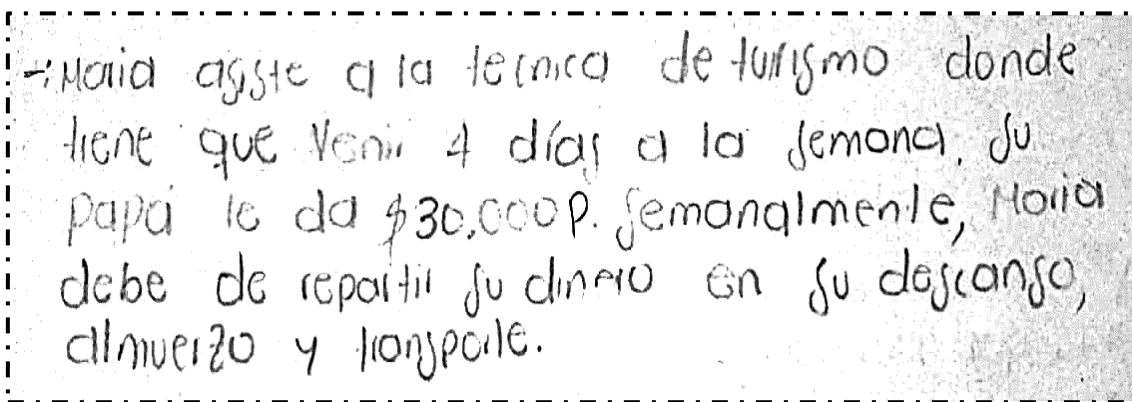 -: Maria asiste a la tecnica de turismo donde
tiene que venir 4 días a la semana. Su
papá le da $30.000 p. semanalmente, Maria
debe de repartir su dinero en su descanso,
almuerzo y transporte.